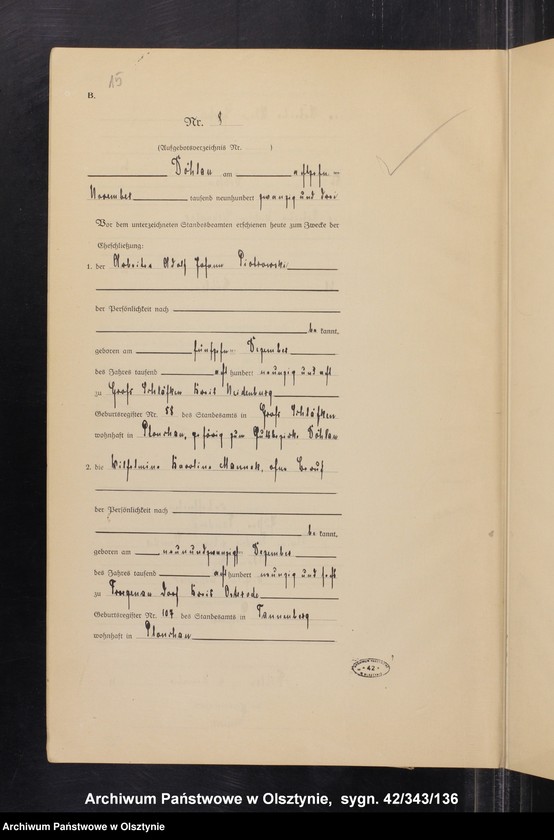 15
B.
Nr. 8
(Aufgebotsverzeichnis Nr. )
Döhlau am achtzehn
November tausend neunhundert zwanzig und drei
Vor dem unterzeichneten Standesbeamten erschienen heute zum Zwecke der
Eheschließung:
1. der Arbeiter Adolf Johann Piotrowski
der Persönlichkeit nach
be kannt,
geboren am fünfzehn Dezember
des Jahres tausend acht hundert neunzig und acht
zu Groß Schläfken Kreis Neidenburg
Geburtsregister Nr. 58 des Standesamts in Groß Schläfken
wohnhaft in gehörig zum Gutsbezirk Döhlau
2. die Wilhelmine Karoline ohne Beruf
der Persönlichkeit nach
be kannt,
geboren am neunundzwanzigst Dezember
des Jahres tausend acht hundert neunzig und sechs
zu Dorf Kreis Osterode
Geburtsregister Nr. 107 des Standesamts in Tannenberg
wohnhaft in
42
Archiwum Państwowe w Olsztynie, sygn. 42/343/136
Archiwum Państwowe w Olsztynie